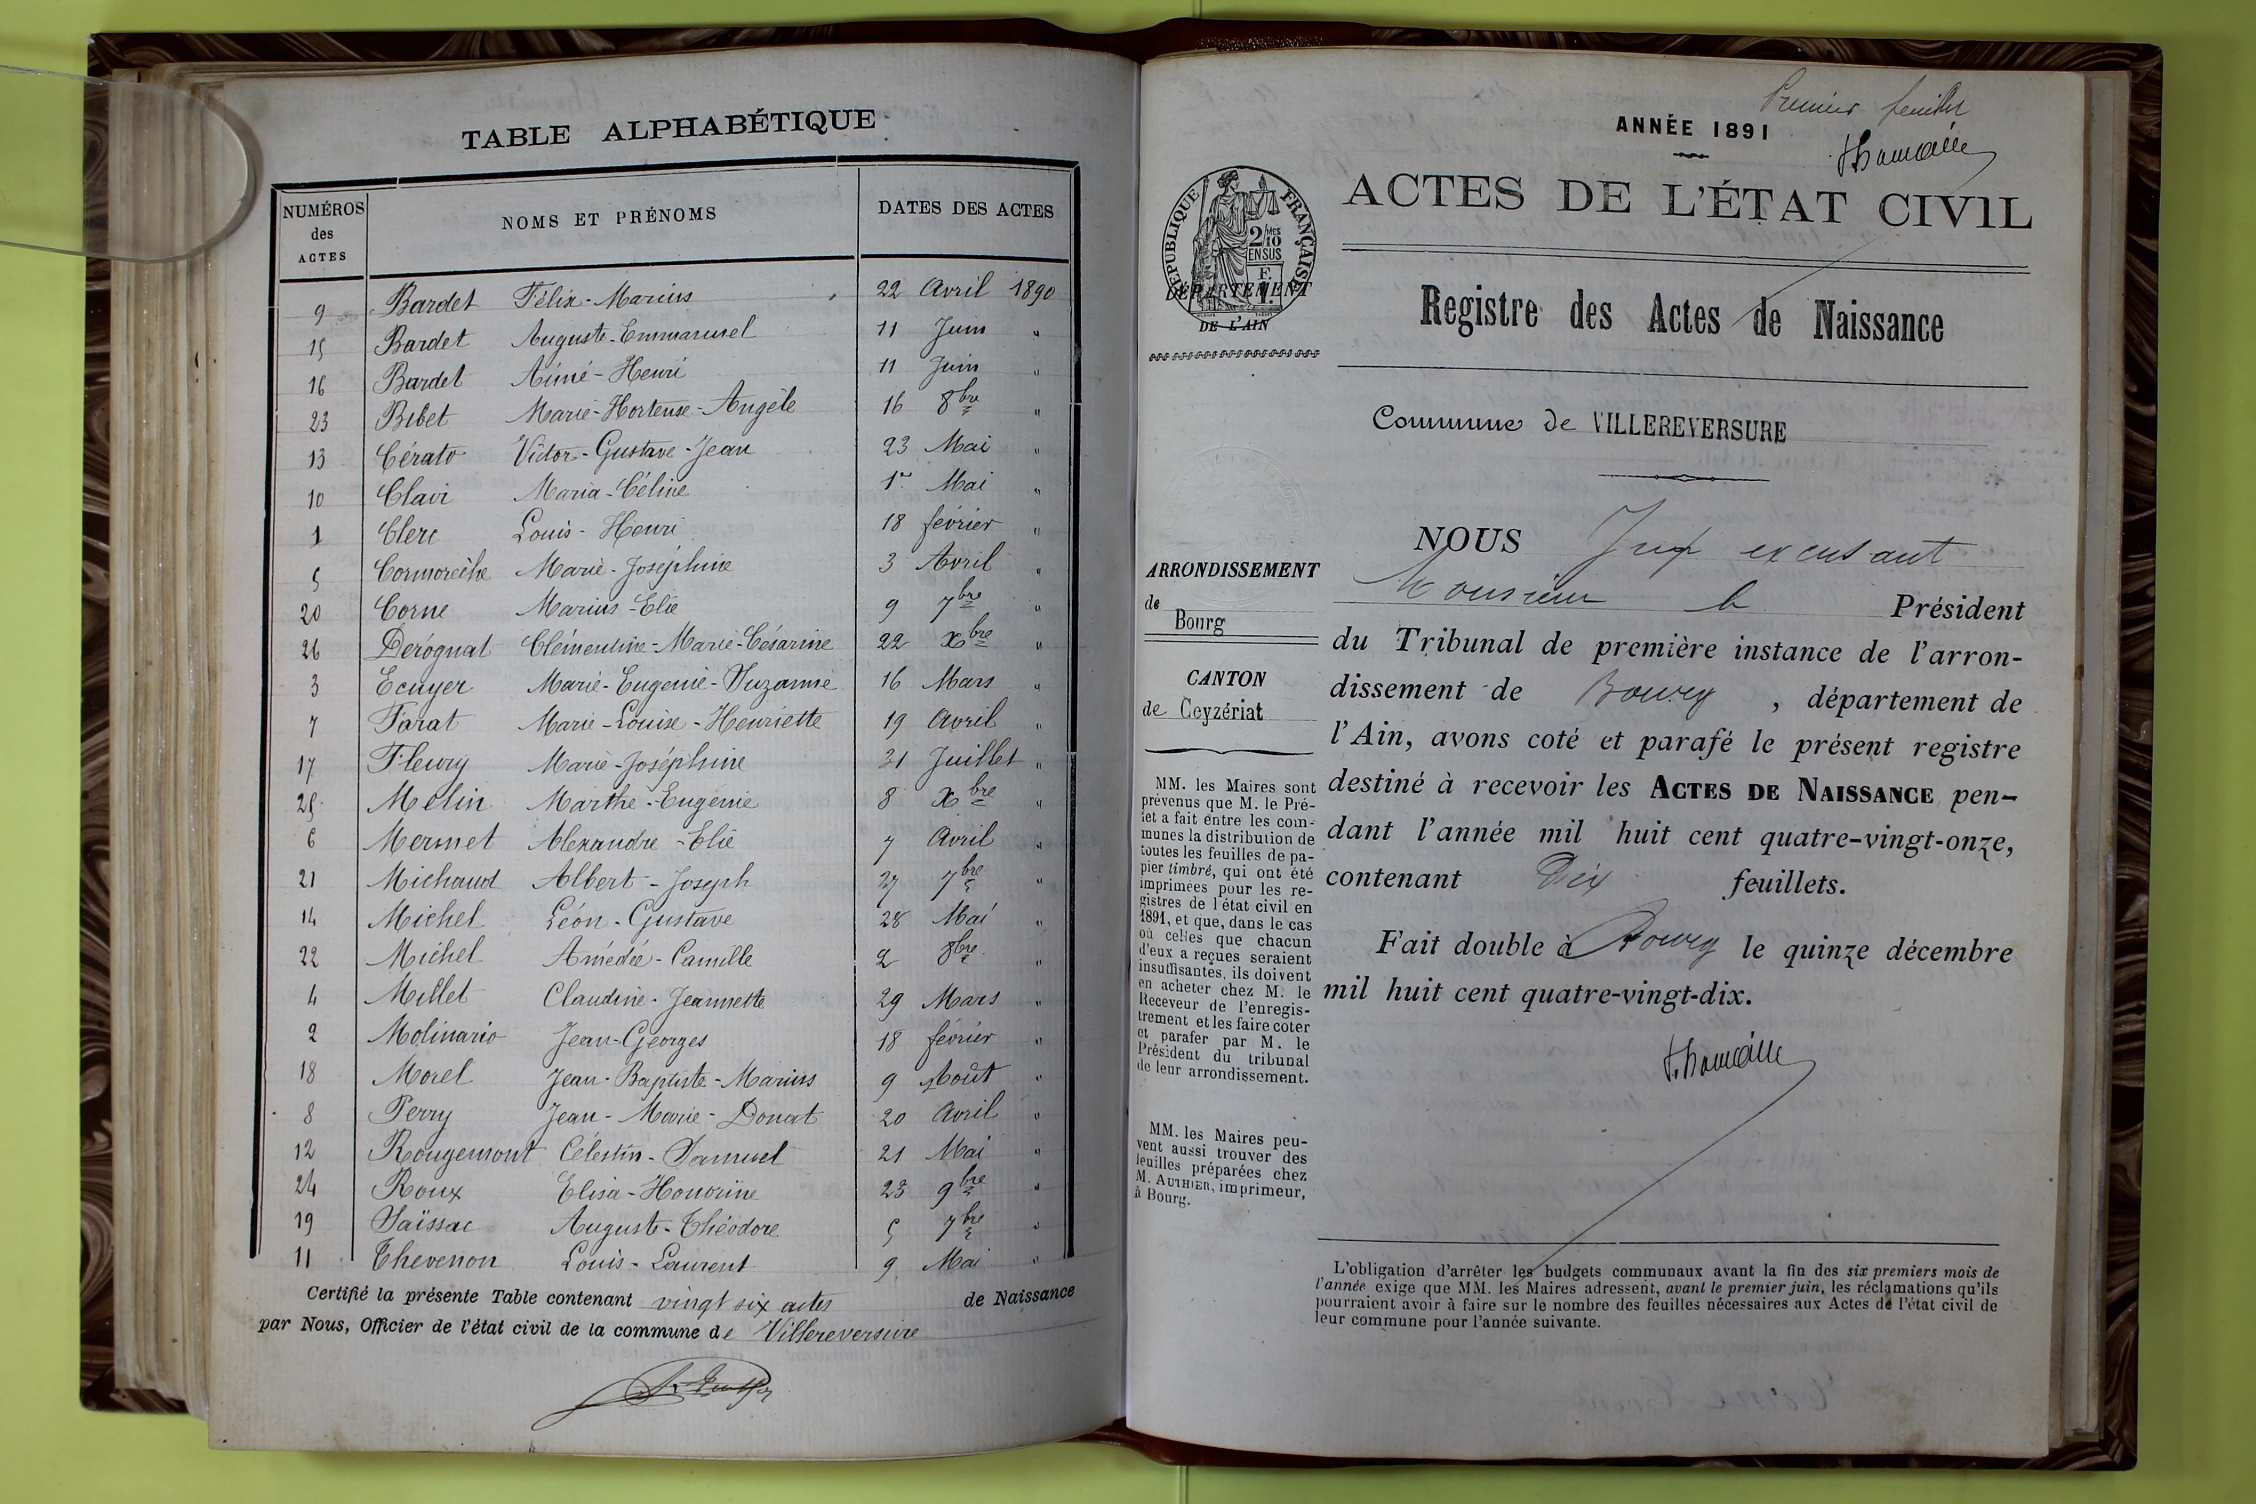 TABLE ALPHABÉTIQUE
NUMÉROS des ACTES NOMS ET PRÉNOMS DATES DES ACTES
9 Bardet Félix-Marius 22 Avril 1890
15 Bardet Auguste-Emmanuel 11 Juin "
16 Bardet Aimé-Henri 11 Juin "
23 Bibet Marie-Hortense-Angèle 16 8bre "
13 Cérato Victor-Gustave-Jean 23 Mai "
10 Clavi Maria-Céline 1r Mai "
1 Clerc Louis-Henri 18 février "
5 Cormorèche Marie-Joséphine 3 Avril "
20 Corne Marius-Elie 9 7bre "
26 Derognat Clémentine-Marie-Césarine 22 Xbre "
3 Ecuyer Marie-Eugenie-Suzanne 16 Mars "
7 Farat Marie-Louise-Henriette 19 Avril "
17 Fleury Marie-Joséphine 31 Juillet "
25 Melin Marthe-Eugénie 8 Xbre "
6 Mermet Alexandre-Elie 7 Avril "
21 Michaud Albert-Joseph 27 7bre "
14 Michel Léon-Gustave 28 Mai "
22 Michel Amédée-Camille 2 8bre "
4 Millet Claudine-Jeannette 29 Mars "
2 Molinario Jean-Georges 18 février "
18 Morel Jean-Baptiste-Marius 9 Août "
8 Perry Jean-Marie-Donat 20 Avril "
12 Rougemont Célestin-Samuel 21 Mai "
24 Roux Elisa-Honorine 23 9bre "
19 Saïssac Auguste-Théodore 5 7bre "
11 Thevenon Louis-Laurent 9 Mai "
Certifié la présente Table contenant vingt six actes de Naissance
par Nous, Officier de l'état civil de la commune de Villereversure
Premier feuillet
ANNÉE 1891
ACTES DE L'ÉTAT CIVIL
RÉPUBLIQUE FRANÇAISE
2/10 MES
EN SUS
DÉPARTEMENT
DE L'AIN
Registre des Actes de Naissance
Commune de VILLEREVERSURE
ARRONDISSEMENT
de
Bourg
CANTON
de Ceyzériat
MM. les Maires sont
prévenus que M. le Pré-
fet a fait entre les com-
munes la distribution de
toutes les feuilles de pa-
pier timbré, qui ont été
imprimées pour les re-
gistres de l'état civil en
1891, et que, dans le cas
où celles que chacun
d'eux a reçues seraient
insuffisantes, ils doivent
en acheter chez M. le
Receveur de l'enregis-
trement et les faire coter
et parafer par M. le
Président du tribunal
de leur arrondissement.
MM. les Maires peu-
vent aussi trouver des
feuilles préparées chez
M. AUTHIER, imprimeur,
à Bourg.
NOUS Juge excusant
Monsieur le Président
du Tribunal de première instance de l'arron-
dissement de Bourg, département de
l'Ain, avons coté et parafé le présent registre
destiné à recevoir les ACTES DE NAISSANCE pen-
dant l'année mil huit cent quatre-vingt-onze,
contenant Dix feuillets.
Fait double à Bourg le quinze décembre
mil huit cent quatre-vingt-dix.
L'obligation d'arrêter les budgets communaux avant la fin des six premiers mois de
l'année exige que MM. les Maires adressent, avant le premier juin, les réclamations qu'ils
pourraient avoir à faire sur le nombre des feuilles nécessaires aux Actes de l'état civil de
leur commune pour l'année suivante.